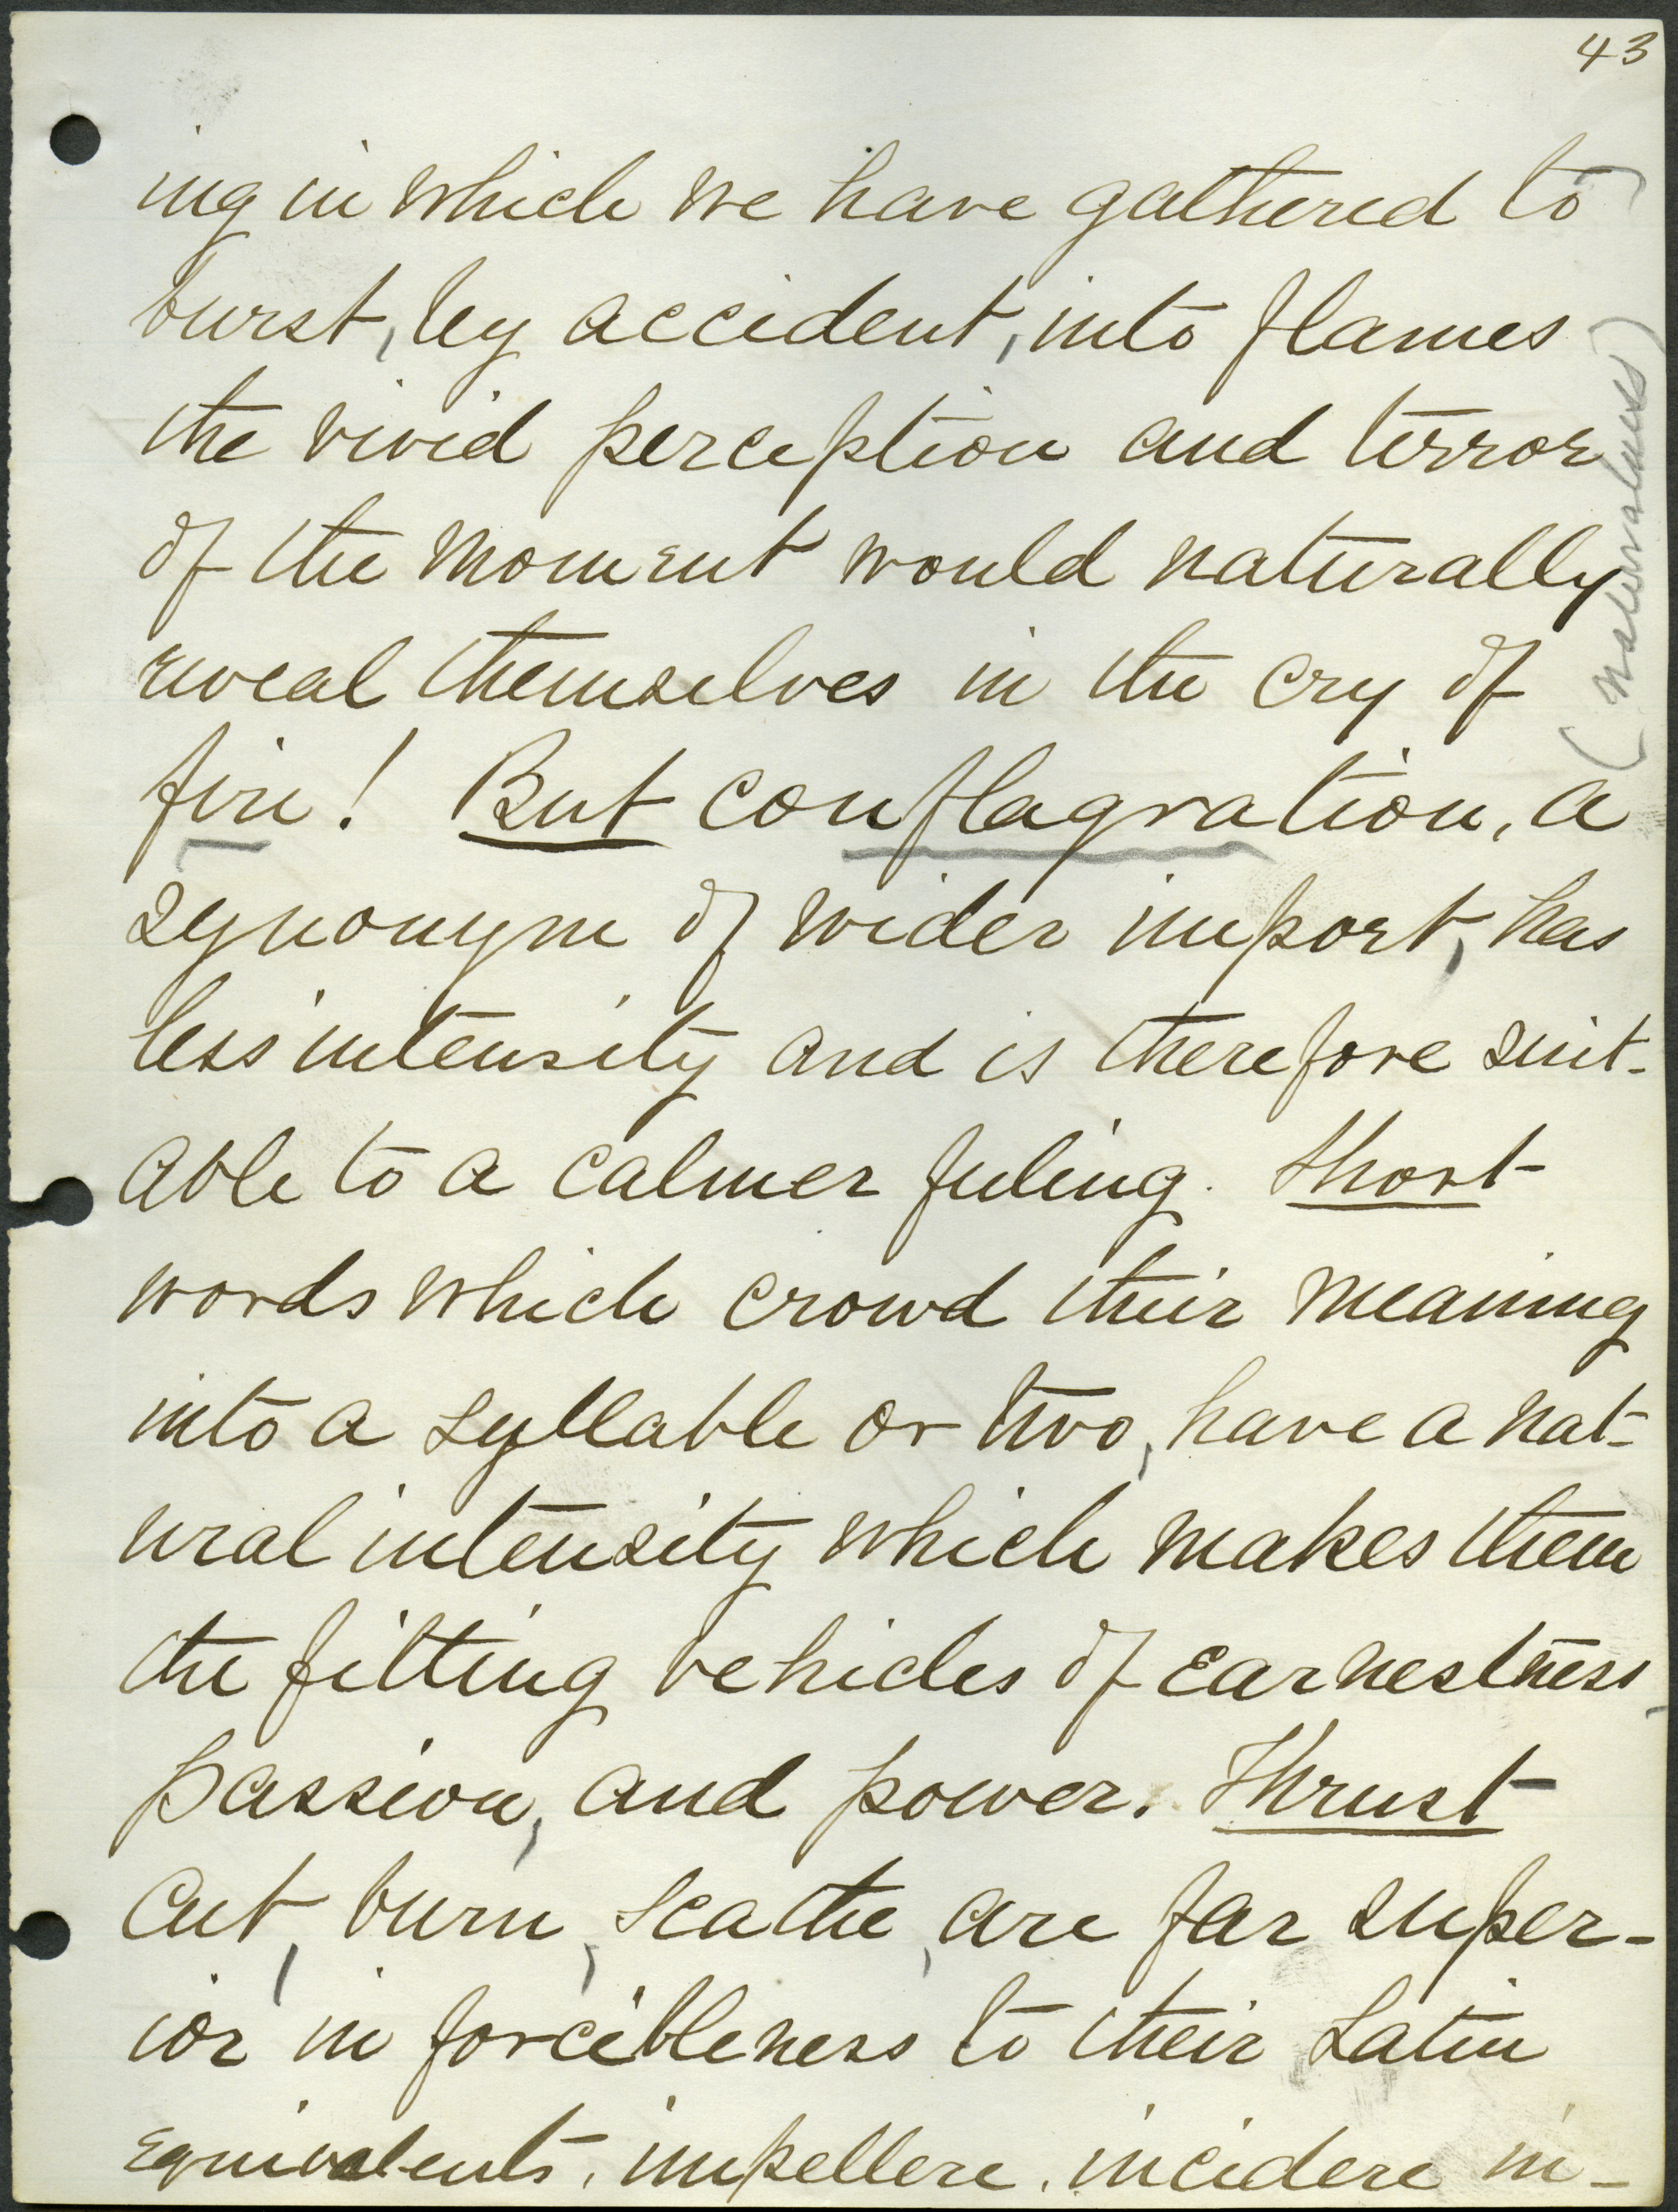 43
ing in which we have gathered to
burst, by accident, into flames
the vivid perception and terror
of the moment would naturally
reveal themselves in the cry of
fire! But conflagration, a
synonym of wider import, has
less intensity and is therefore suit-
able to a calmer feeling. Short
words which crowd their meaning
into a syllable or two, have a nat-
ural intensity which makes them
the fitting vehicles of earnestness,
passion, and power. Thrust
cut, burn, scathe, are far super-
ior in forcibleness to their Latin
equivalents, impellere, incidere in-
(naturalness)